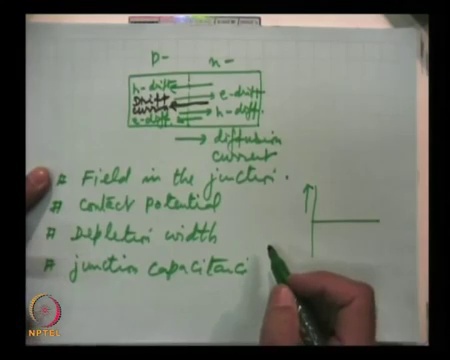 p- n-
h-drift
e-drift
Drift
current
h-diff.
e-diff.
diffusion
current
# Field in the junction.
# contact potential
# Depletion width
# junction capacitanci
NPTEL